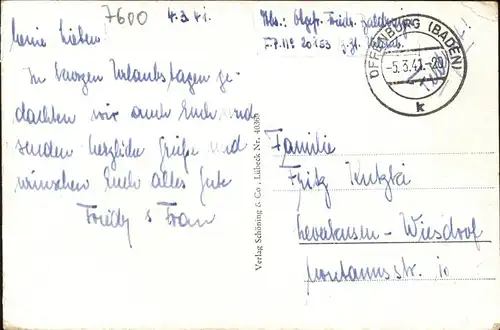 7600
4.3.41.
Meine Lieben!
In kurzen Urlaubstagen ge-
dachten wir auch Euch und
senden herzliche Grüße und
wünschen Euch alles Gute
Friedr & Frau
Abs.: Obgefr. Friedr.
F.P. No 20153 z. Zt. Urlaub
OFFENBURG (BADEN)
-5.3.41.-20
k
Verlag Schöning & Co., Lübeck Nr. 40369
Familie
Fritz Kutzki
Leverkusen-Wiesdorf
str. 10